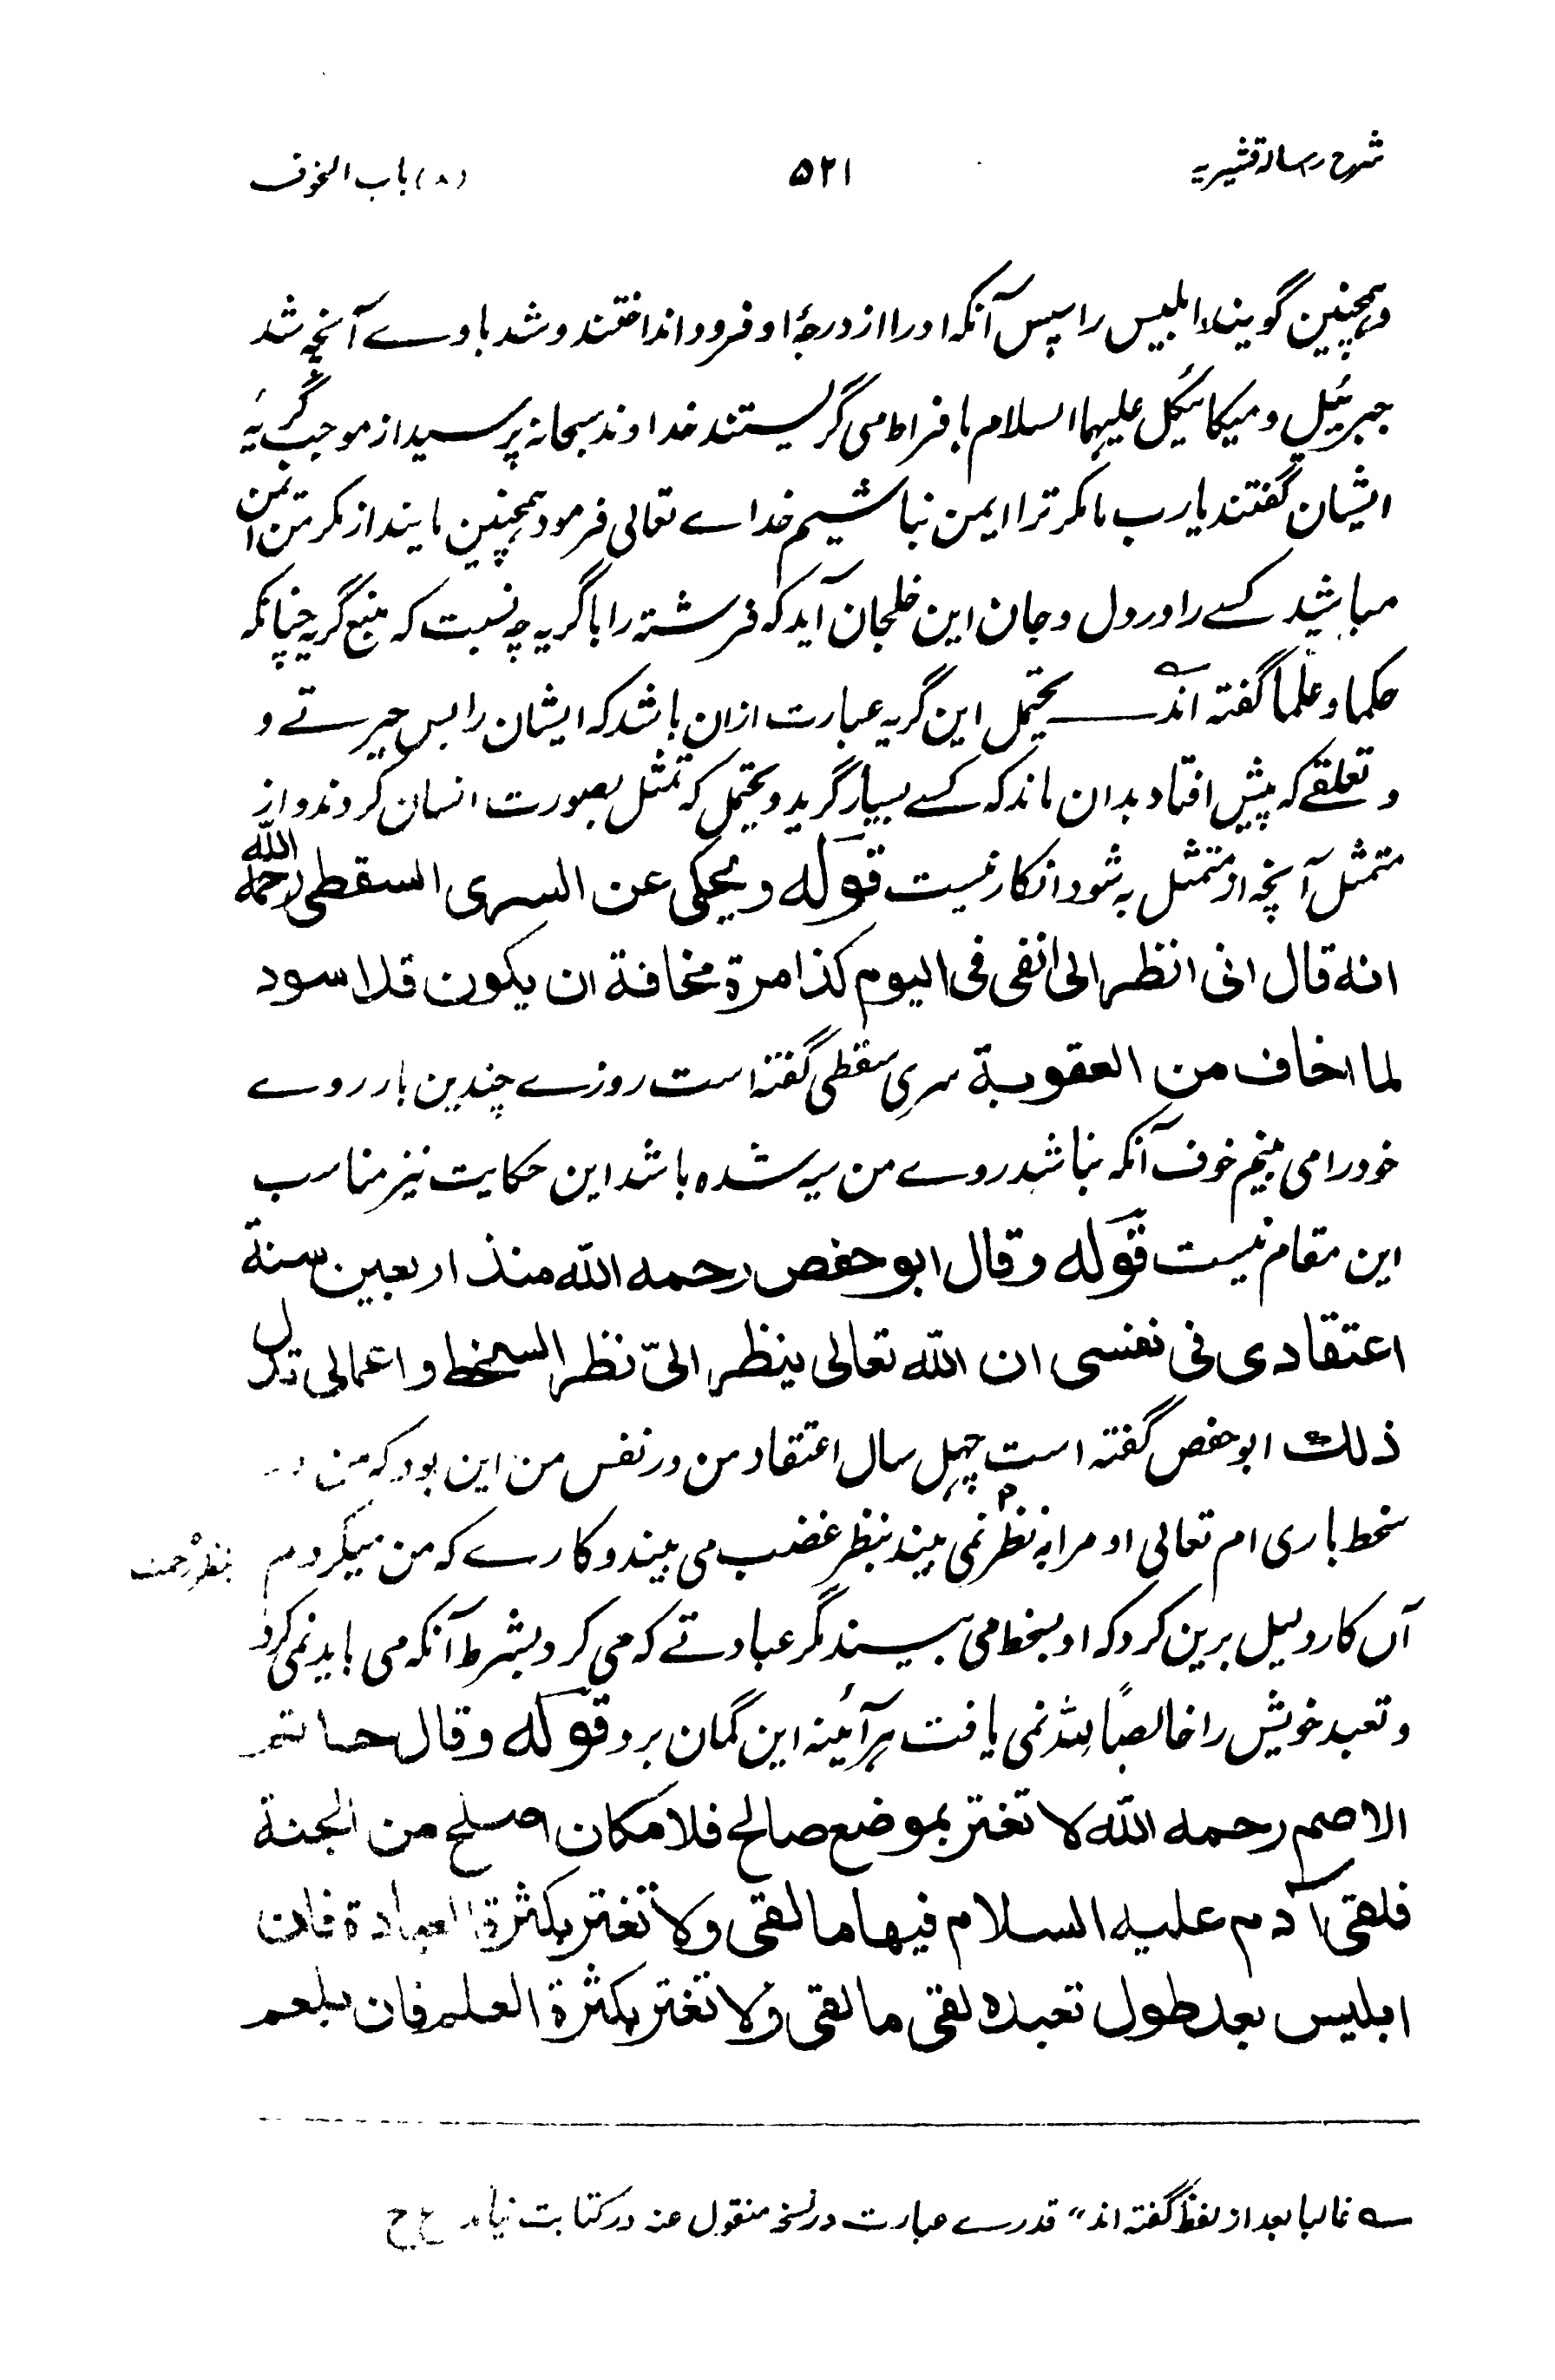 شرح رسالہ قشیریہ ۵۲۱ (۸) باب الخوف
وہمچنین گویند ابلیس را سپس آنکہ او را از درجۂ او فرود انداختند و شد باوے آنچہ شد
جبرئیل و میکائیل علیہما السلام بافراط می گریستند خداوند سبحانہ پرسید از موجب گریۂ
ایشان گفتند یا رب ما مکر ترا ایمن نباشیم خداے تعالی فرمود ہمچنین مایند از مکر من ایمن
مباشید کسے را در دل و جان این خلجان آید کہ فرشتہ را باگریہ چہ نسبت کہ منبع گریہ چنانکہ
حکما و علما گفتہ اند ؎ یحتمل این گریہ عبارت ازان باشد کہ ایشان را بس حیرتے و
و تعلقے کہ پیش افتاد بدان ماند کہ کسے بسیار گرید و یحتمل کہ تمثل بصورت انسان کردند و از
متمثل آنچہ از متمثل بہ شود انکار نیست قولہ ویحکی عن السری السقطی رحمہ اللہ
انہ قال انی انظر الی انفی فی الیوم کذا مرة مخافة ان یکون قد اسود
لما اخاف من العقوبة سری سقطی گفتہ است روزے چندین بار روے
خود را می بینم خوف آنکہ نباشد روے من سیہ شدہ باشد این حکایت نیز مناسب
این مقام نیست قولہ وقال ابو حفص رحمہ اللہ منذ اربعین سنة
اعتقادی فی نفسی ان اللہ تعالی ینظر الیّ نظر السخط و اعمالی تدل
ذلک ابو حفص گفتہ است چہل سال اعتقاد من در نفس من این بود کہ من در
سخط باری ام تعالی او مرا بہ نظر نمی بیند بنظر غضب می بیند و کارے کہ من میکردم بنظر رحمت
آں کار دلیل برین کرد کہ او بسخط می بیند مگر عبادتے کہ می کرد بشرط آنکہ می باید نمی کرد
و تعبد خویش را خالصاً للہ نمی یافت ہرآئینہ این گمان برد قولہ وقال حاتم
الاصم رحمہ اللہ لا تغتر بموضع صالح فلا مکان اصلح من الجنة
فلقی آدم علیہ السلام فیہا ما لقی ولا تغتر بکثرة العبادة فان
ابلیس بعد طول تعبدہ لقی ما لقی ولا تغتر بکثرة العلم فان بلعم
؎ غالبا بعد از لفظ "گفتہ اند" قدرے عبارت در نسخہ منقول عنہ در کتابت نیامد ع ح